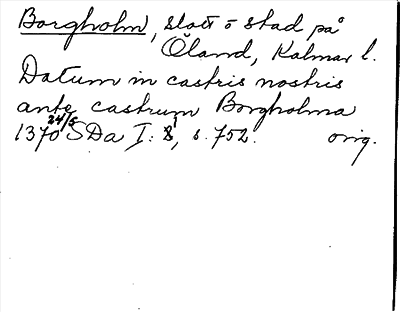 Borgholm, slott o stad på
Öland, Kalmar l.
Datum in castris nostris
ante castrum Borgholma
1370 24/5 SDa I: 8, s. 752. orig.